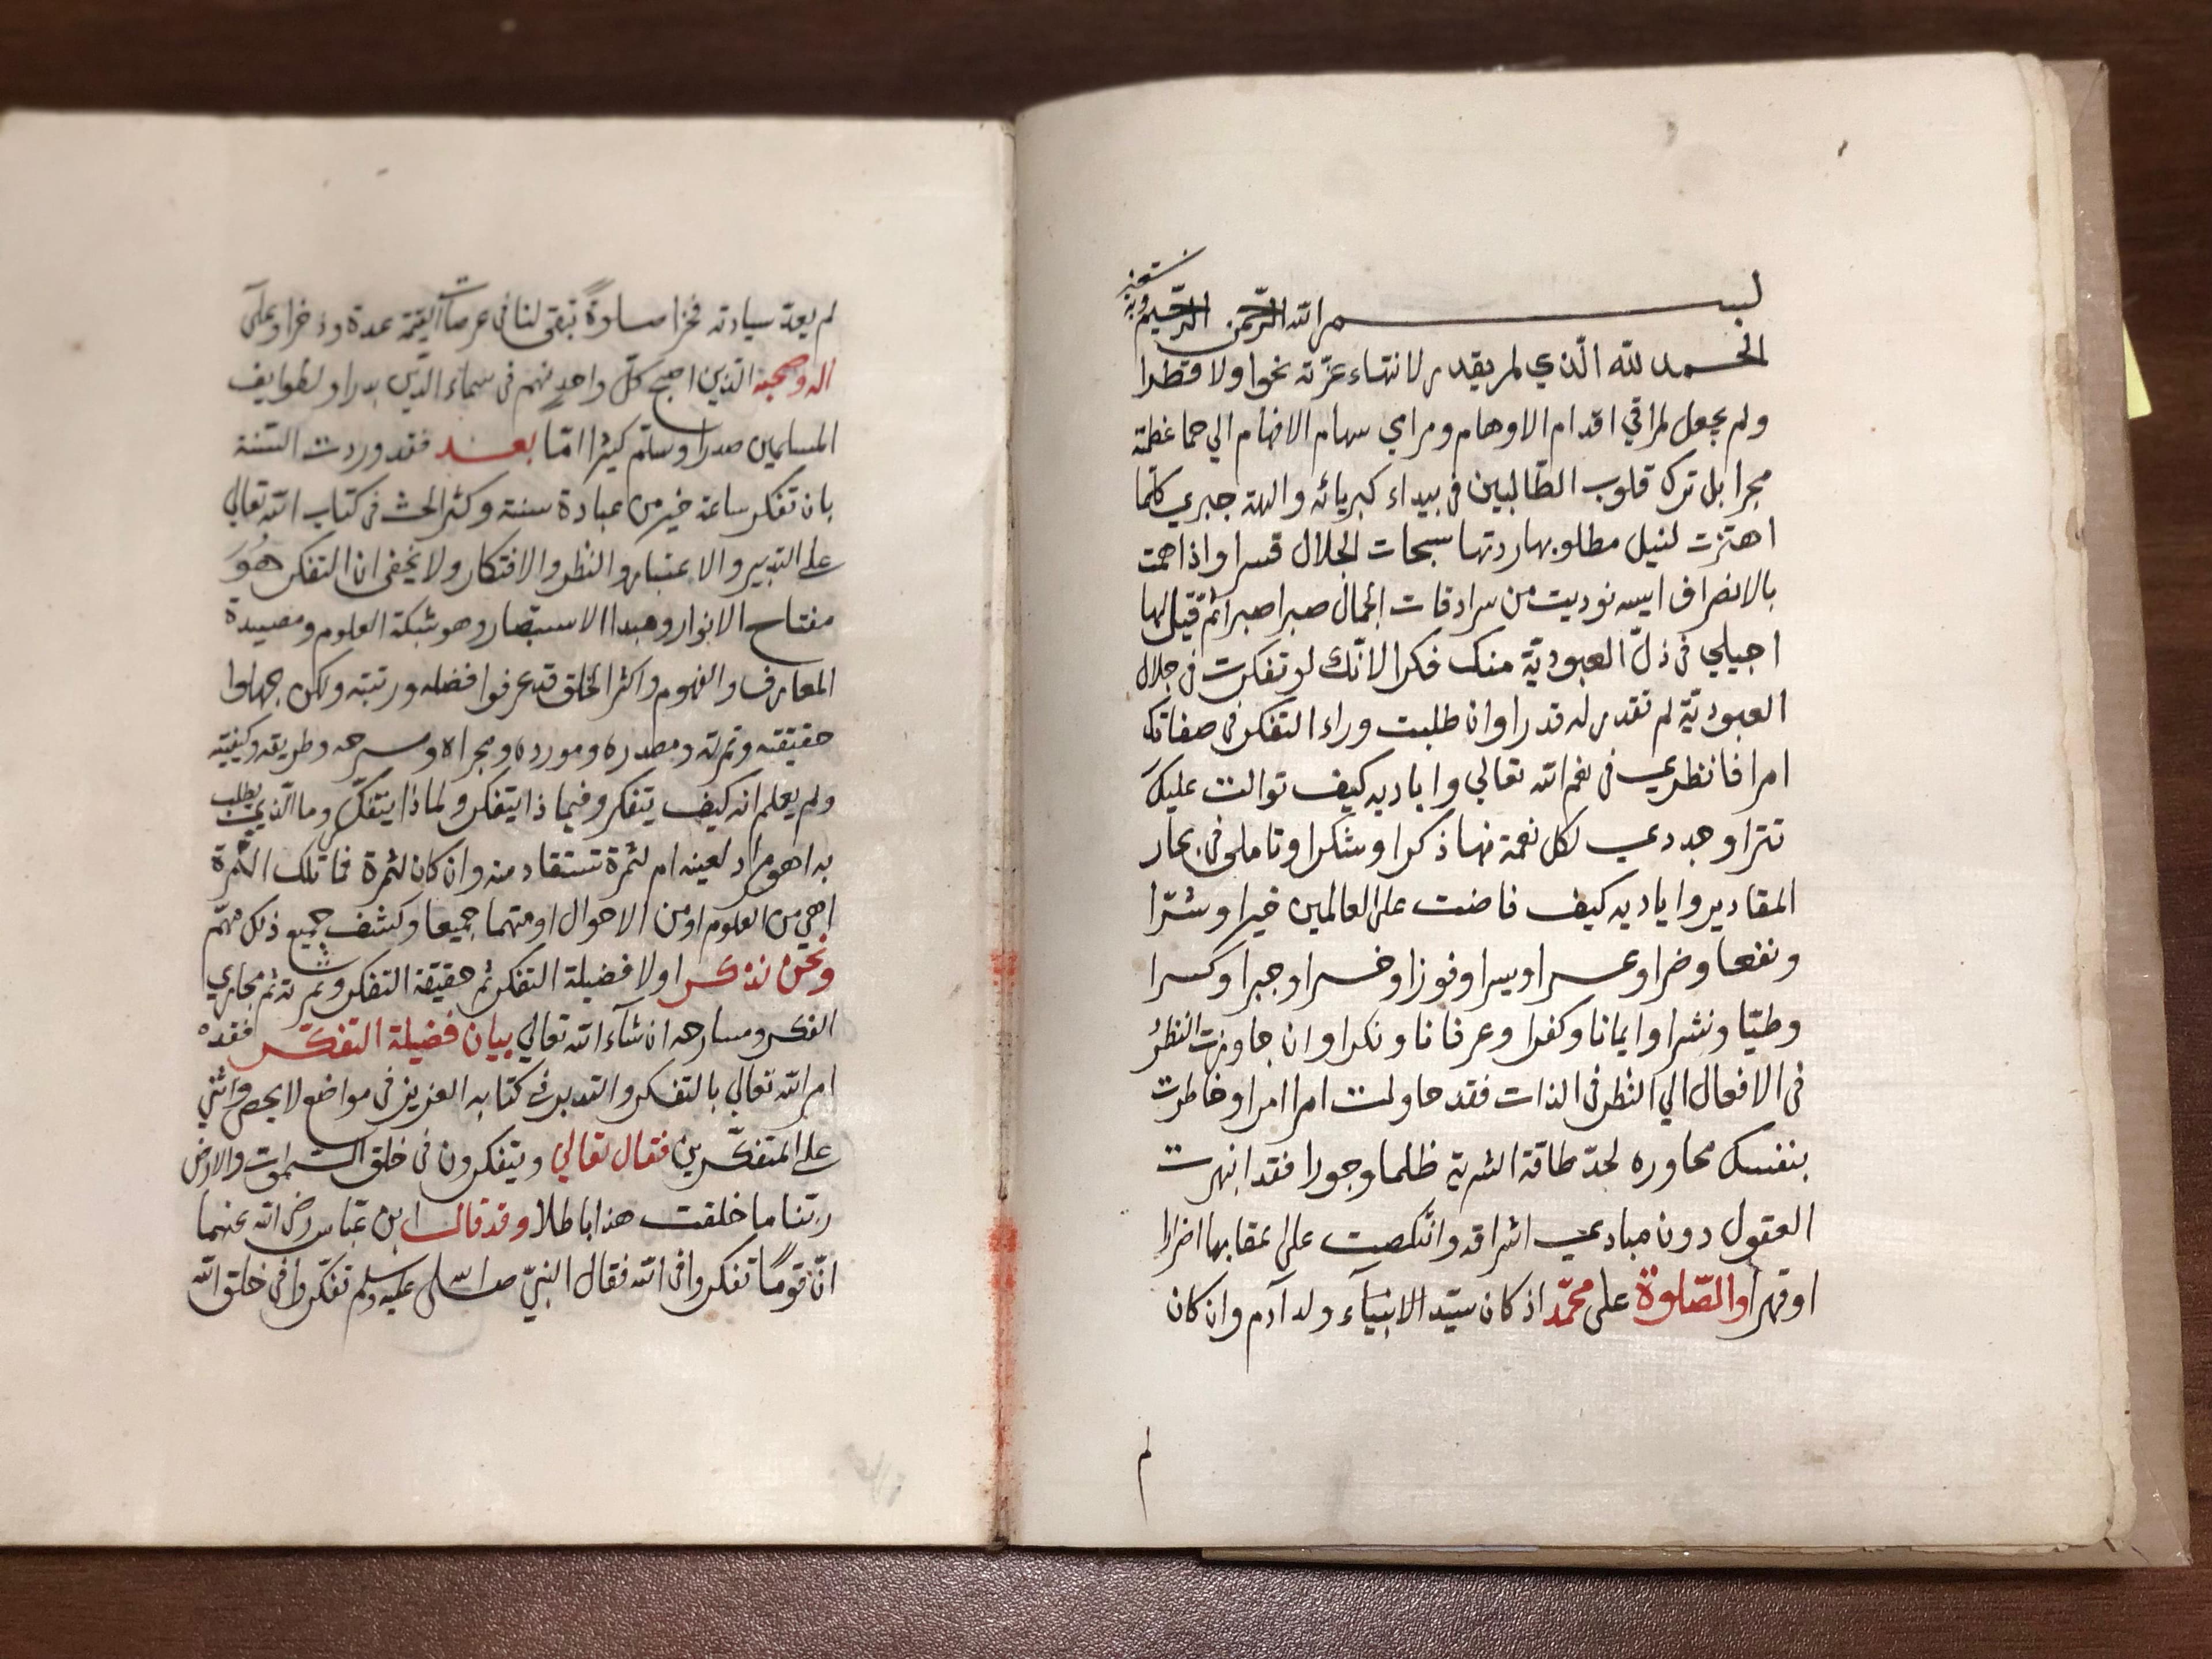 بسم الله الرحمن الرحيم وبه نستعين
الحمد لله الذي لم يقدر لانتهاء عزته نحوا ولا قطرا
ولم يجعل لمراقي اقدام الاوهام ومرامي سهام الافهام الي حما عظمته
مجرا بل ترك قلوب الطالبين في بيداء كبريائه والهة حيري كلما
اهتزت لنيل مطلوبها ردتها سبحات الجلال قسرا واذا همت
بالانصراف ايسه نوديت من سرادقات الجمال صبرا صبرا ثم قيل لها
اجيلي في ذل العبودية منك فكرا لانك لو تفكرت في جلال
العبودية لم تقدر له قدرا وان طلبت وراء التفكر في صفاتك
امرا فانظري في نعم الله تعالي واياديه كيف توالت عليك
تترا وجددي لكل نعمة منها ذكرا وشكرا وتاملي في بحار
المقادير واياديه كيف فاضت علي العالمين خيرا وشرا
ونفعا وضرا وعسرا ويسرا وفوزا وخسرا وجبرا وكسرا
وطيا ونشرا وايمانا وكفرا وعرفانا ونكرا وان جاوزت النظر
في الافعال الي النظر في الذات فقد حاولت امرا امرا وخاطرت
بنفسك مجاوره لحد طاقة الشرية ظلما وجورا فقد انبهرت
العقول دون مبادي اشراقه وانتكصت علي اعقابها اضرارا
او قهرا والصلوة علي محمد اذ كان سيد الانبياء ولد آدم وان كان
لم
لم يعد سيادته فخرا صلوة تبقي لنا في عرصات القيمة عدة وذخرا وعلي
اله وصحبه الذين اصبح كل واحد منهم في سماء الدين بدرا ولطوايف
المسلمين صدرا وسلم كثيرا اما بعد فقد وردت السنة
بان تفكر ساعة خير من عبادة سنة وكثر الحث في كتاب الله تعالي
علي التدبير والاعتبار والنظر والافتكار ولا يخفي ان التفكر هو
مفتاح الانوار ومبدا الاستبصار وهو شبكة العلوم ومصيدة
المعارف والفهوم واكثر الخلق قد عرفوا فضله ورتبته ولكن جهلوا
حقيقته وثمرته ومصدره ومورده ومجراه ومسرحه وطريقه وكيفيته
ولم يعلم انه كيف يتفكر وفيما ذا يتفكر ولماذا يتفكر وما الذي يطلب
به اهو مراد لعينه ام لثمرة تستفاد منه وان كان لثمرة فما تلك الثمرة
اهي من العلوم او من الاحوال او منهما جميعا وكشف جميع ذلك مهم
ونحن نذكر اولا فضيلة التفكر ثم حقيقة التفكر وثمرته ثم مجاري
الفكر ومسارحه ان شآء الله تعالي بيان فضيلة التفكر فقد
امر الله تعالي بالتفكر والتدبر في كتابه العزيز في مواضع لا يحصي واثني
علي المتفكرين فقال تعالي ويتفكرون في خلق السموات والارض
ربنا ما خلقت هذا باطلا وقد قال ابن عباس رضي الله عنهما
ان قوما تفكروا في الله فقال النبي صلي الله عليه وسلم تفكروا في خلق الله